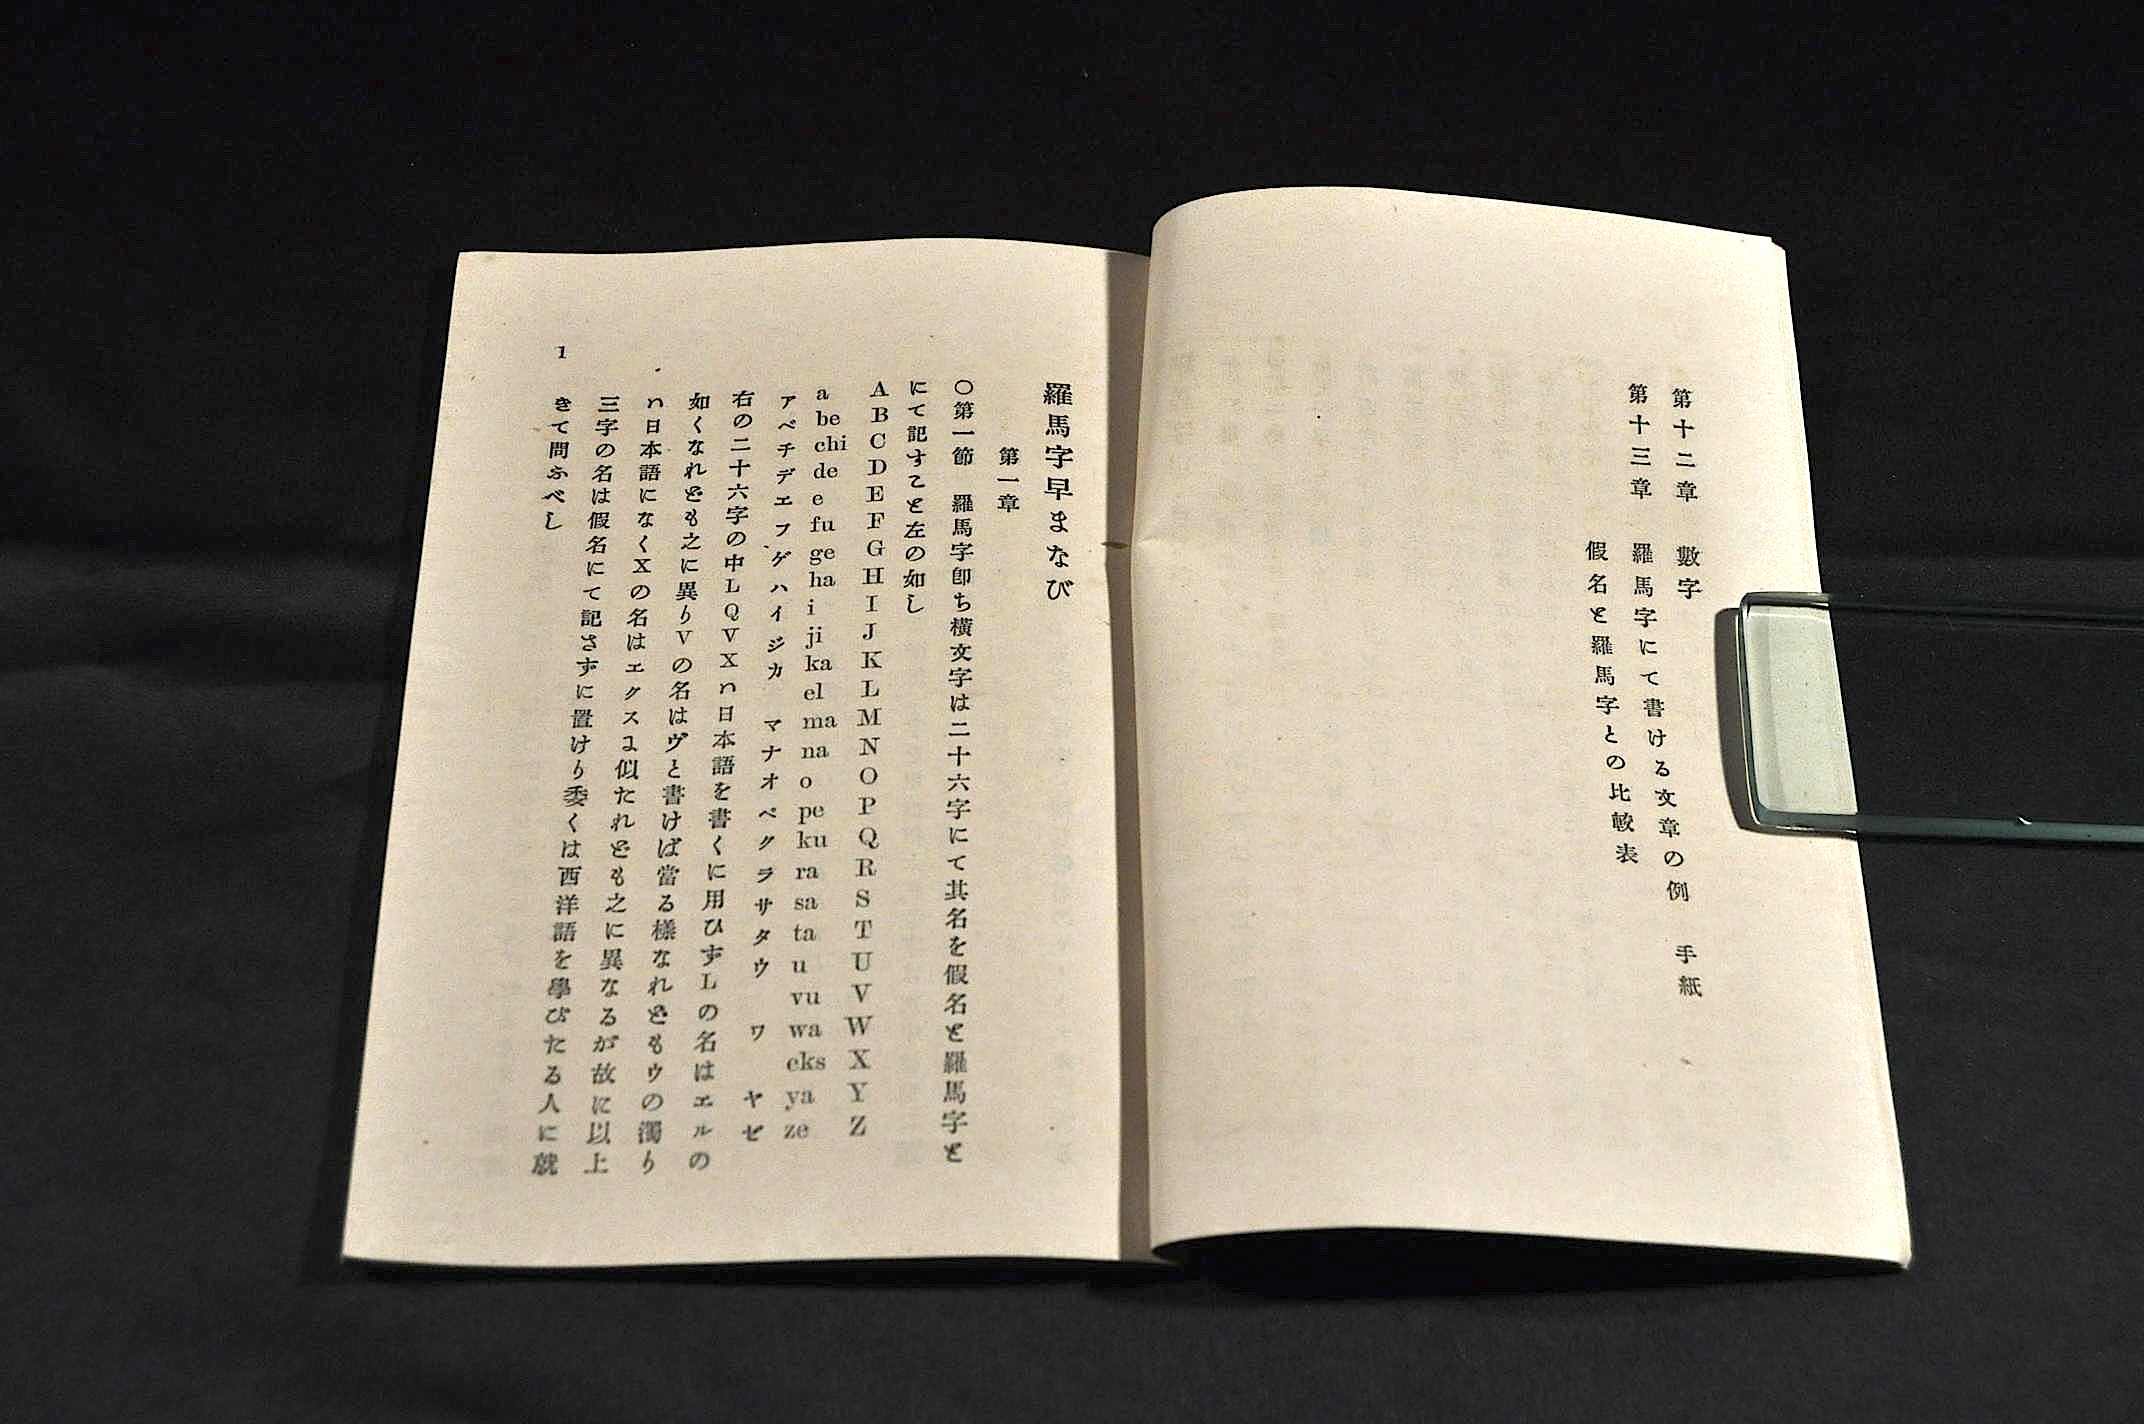 第十二章　數字
第十三章　羅馬字にて書ける文章の例　手紙
假名と羅馬字との比較表
羅馬字早まなび
第一章
〇第一節　羅馬字卽ち橫文字は二十六字にて其名を假名と羅馬字と
にて記すこと左の如し
A B C D E F G H I J K L M N O P Q R S T U V W X Y Z
a be chi de e fu ge ha i ji ka el ma na o pe ku ra sa ta u vu wa eks ya ze
ア ベ チ デ エ フ ゲ ハ イ ジ カ　マ ナ オ ペ ク ラ サ タ ウ　ワ　ヤ ゼ
右の二十六字の中L Q V Xハ日本語を書くに用ひずLの名はエルの
如くなれども之に異りVの名はヴと書けば當る樣なれどもウの濁り
ハ日本語になくXの名はエクスヱ似たれども之に異なるが故に以上
三字の名は假名にて記さずに置けり委くは西洋語を學びたる人に就
きて問ふべし
1